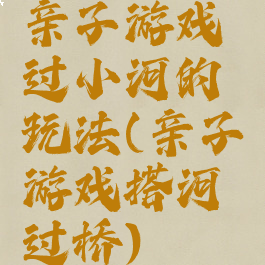 亲子游戏
过小河的
玩法(亲子
游戏搭河
过桥)